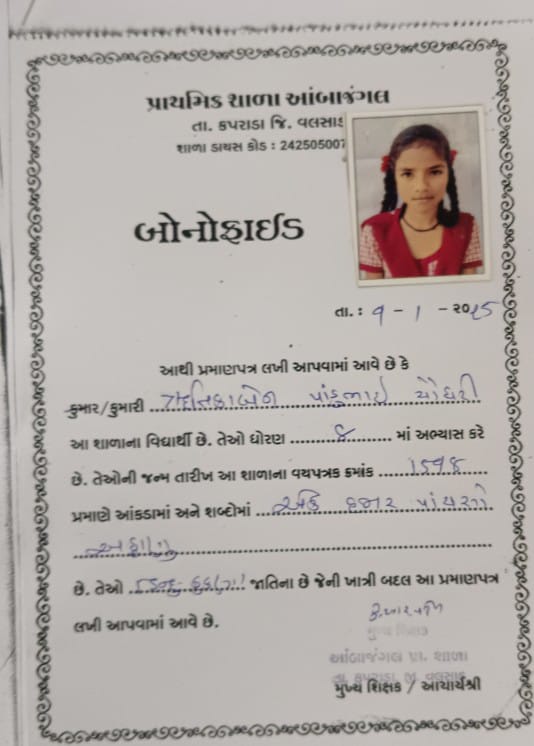 પ્રાથમિક શાળા આંબાજંગલ
તા. કપરાડા જિ. વલસાડ
શાળા ડાયસ કોડ : 242505007
બોનોફાઈડ
તા. : ૧ - ૧ - ૨૦૨૫
આથી પ્રમાણપત્ર લખી આપવામાં આવે છે કે
કુમાર/કુમારી પાંડુભાઈ ચૌધરી
આ શાળાના વિદ્યાર્થી છે. તેઓ ધોરણ ૪ માં અભ્યાસ કરે
છે. તેઓની જન્મ તારીખ આ શાળાના વયપત્રક ક્રમાંક ૧૫૭૮
પ્રમાણે આંકડામાં અને શબ્દોમાં એક હજાર પાંચસો
છે. તેઓ હિન્દુ કુકણા જાતિના છે જેની ખાત્રી બદલ આ પ્રમાણપત્ર
લખી આપવામાં આવે છે.
આંબાજંગલ પ્રા. શાળા
તા. કપરાડા જી. વલસાડ
મુખ્ય શિક્ષક / આચાર્યશ્રી